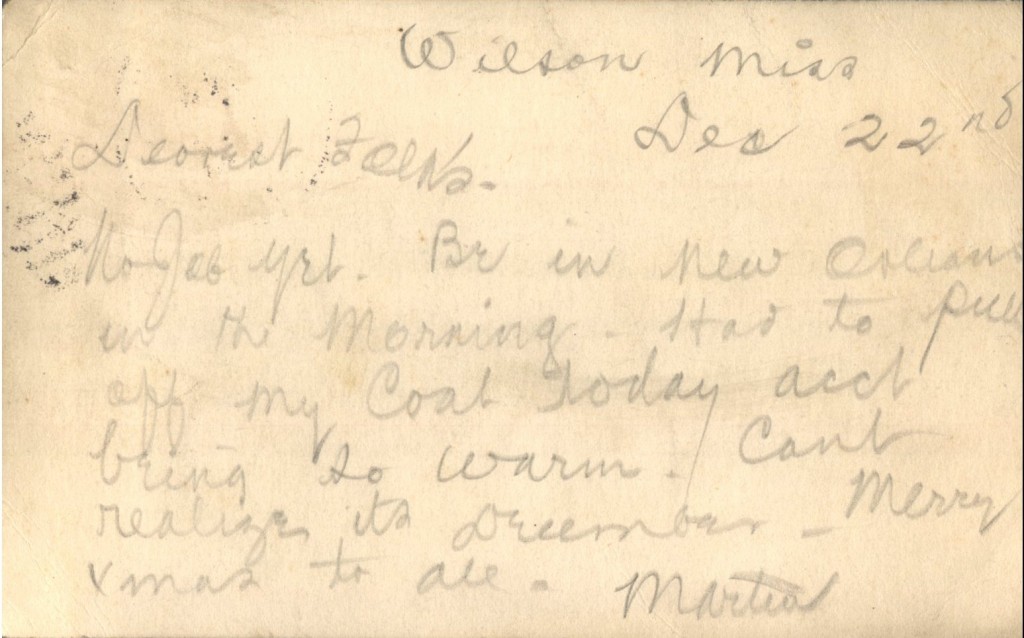 Wilson Miss
Dec 22nd
Dearest Folks.
No Job yet. Be in New Orleans
in the Morning. Had to pull
off my Coat today acct
being so warm. Cant
realize its December - Merry
xmas to all.
Martin